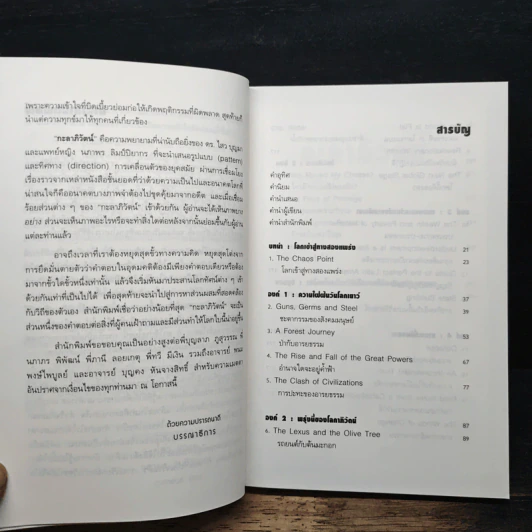 เพราะความเข้าใจที่บิดเบี้ยวย่อมก่อให้เกิดพฤติกรรมที่ผิดพลาด สุดท้ายก็
นำแต่ความทุกข์มาให้ทุกคนที่เกี่ยวข้อง
"กะลาภิวัตน์" คือความพยายามที่น่านับถือยิ่งของ ดร. ไสว บุญมา
และแพทย์หญิง นภาพร ลิมป์ปิยากร ที่จะนำเสนอรูปแบบ (pattern)
และทิศทาง (direction) การเคลื่อนตัวของยุคสมัย ผ่านการเชื่อมโยง
เรื่องราวจากเหล่าหนังสือชั้นยอดที่ว่าด้วยความเป็นไปและอนาคตโลกที่
น่าสนใจก็คืออนาคตบางภาพจำต้องไปขุดคุ้ยมาจากอดีต และเมื่อเชื่อม
ร้อยส่วนต่าง ๆ ของ "กะลาภิวัตน์" เข้าด้วยกัน ผู้อ่านจะได้เห็นภาพบาง
อย่าง ส่วนจะเห็นภาพอะไรหรือจะทำสิ่งใดต่อหลังจากนั้นย่อมขึ้นกับผู้อ่าน
แต่ละท่านแล้ว
อาจถึงเวลาที่เราต้องหยุดสุดขั้วทางความคิด หยุดสุดโต่งจาก
การยึดมั่นตายตัวว่าคำตอบใดในยุคมดิต้องมีเพียงคำตอบเดียวหรือต้อง
มาจากขั้วใดขั้วหนึ่งเท่านั้น แล้วจึงเริ่มหันมาประสานโลกทัศน์ต่าง ๆ เข้า
ด้วยกันเท่าที่เป็นไปได้ เพื่อสุดท้ายจะนำไปสู่การหาส่วนผสมที่สอดคล้อง
กับวิถีของตัวเอง สำนักพิมพ์เชื่อว่าอย่างน้อยที่สุด "กะลาภิวัตน์" จะเป็น
ส่วนหนึ่งของคำตอบต่อสิ่งที่ผู้คนเฝ้าถามและมีส่วนทำให้โลกใบนี้น่าอยู่ขึ้น
สำนักพิมพ์ขอขอบคุณเป็นอย่างสูงต่อพี่บุญลาภ ภูสุวรรณ พี่
นภาภร พิพัฒน์ พี่ภาณี ลอยเกตุ พี่ทวี มีเงิน รวมถึงอาจารย์
พงษ์ไพบูลย์ และอาจารย์ บุญตง หันจางสิทธิ์ สำหรับความเมตตา
อันปราศจากเงื่อนไขของทุกท่านมา ณ โอกาสนี้
ด้วยความปรารถนาดี
บรรณาธิการ
สารบัญ
คำอุทิศ
คำนิยม
คำนำเสนอ
คำนำผู้เขียน
คำนำสำนักพิมพ์
บทนำ : โลกเข้าสู่ทางสองแพร่ง 21
1. The Chaos Point 23
โลกเข้าสู่ทางสองแพร่ง
องก์ 1 : ความไม่ใฝ่ฝันวันโลกเยาว์
2. Guns, Germs and Steel
ชะตากรรมของสังคมมนุษย์
3. A Forest Journey
ป่ากับอารยธรรม
4. The Rise and Fall of the Great Powers 61
อำนาจใดจะอยู่ค้ำฟ้า
5. The Clash of Civilizations 77
การปะทะของอารยธรรม
องก์ 2 : พรุ่งนี้ของโลกาภิวัตน์ 87
6. The Lexus and the Olive Tree 89
รถยนต์กับต้นมะกอก